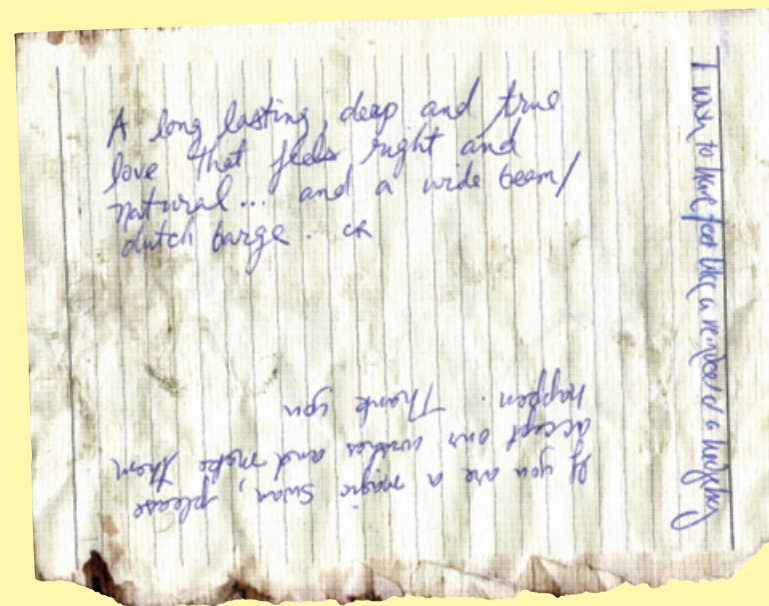 A long lasting, deep and true
love that feels right and
natural... and a wide beam/
dutch barge. CR
I wish to have feet like a reindeer or a hedgehog
If you are a magic swan, please
accept our wishes and make them
happen. Thank you